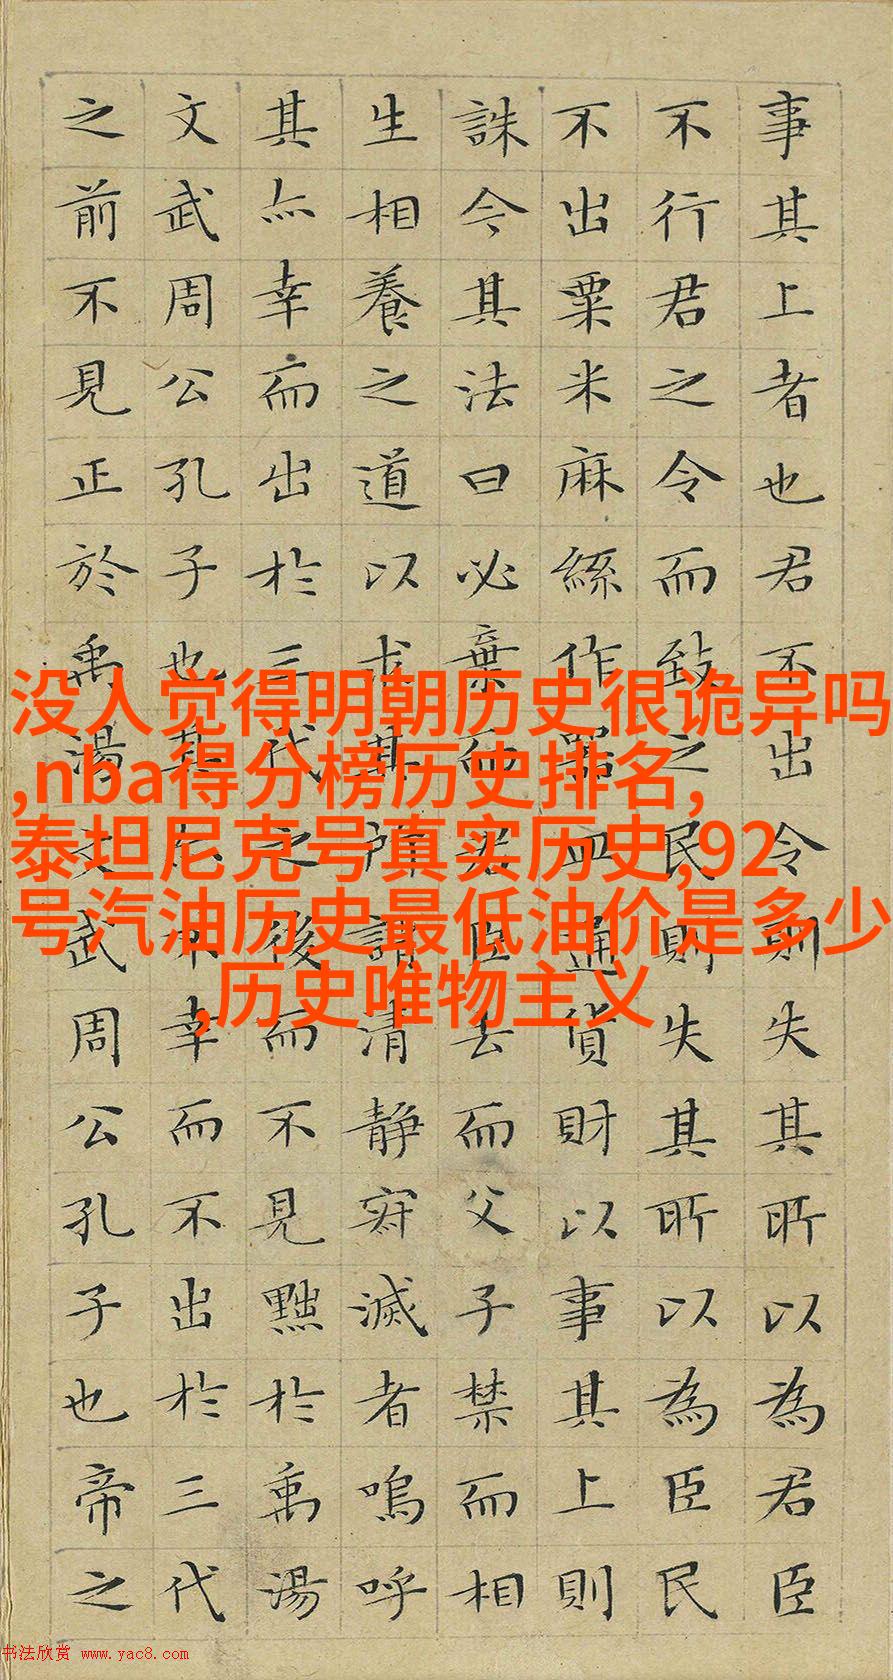 事其上者也君不出令則失其所以為君臣
不行君之令而致之民則失其所以為臣民
不出粟米麻絲作器皿通貨財以事其上則
誅今其法曰必棄而君臣去而父子禁而相
生相養之道以求其所謂清静寂滅者嗚呼
其亦幸而出於三代之後而不見黜於禹湯
文武周公孔子也其亦不幸而不出於三代
之前不見正於禹湯文武周公孔子也帝之
没人觉得明朝历史很诡异吗
,nba得分榜历史排名,
泰坦尼克号真实历史,92
号汽油历史最低油价是多少
,历史唯物主义
书法欣赏 www.yac8.com